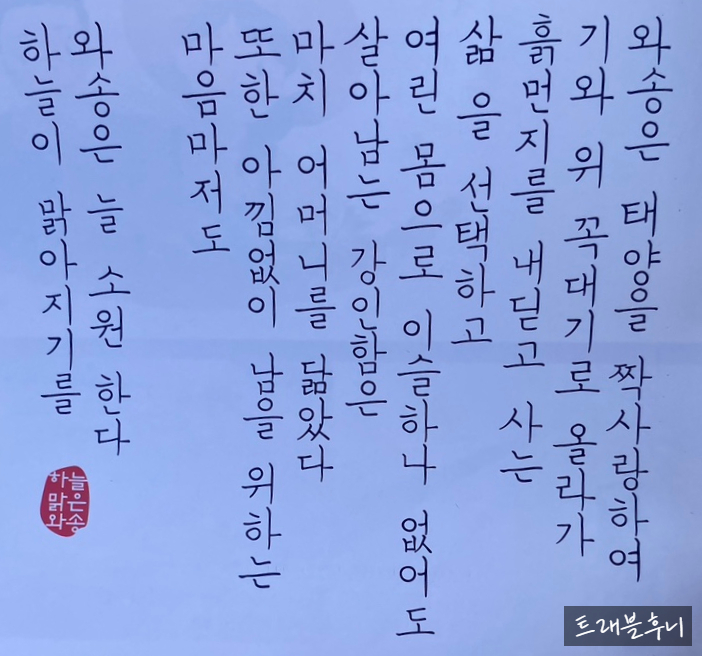 와송은 태양을 짝사랑하여
기와 위 꼭대기로 올라가
흙먼지를 내딛고 사는
삶을 선택하고
여린 몸으로 이슬하나 없어도
살아남는 강인함은
마치 어머니를 닮았다
또한 아낌없이 남을 위하는
마음마저도
와송은 늘 소원 한다
하늘이 맑아지기를
하늘
맑은
와송
트래블후니